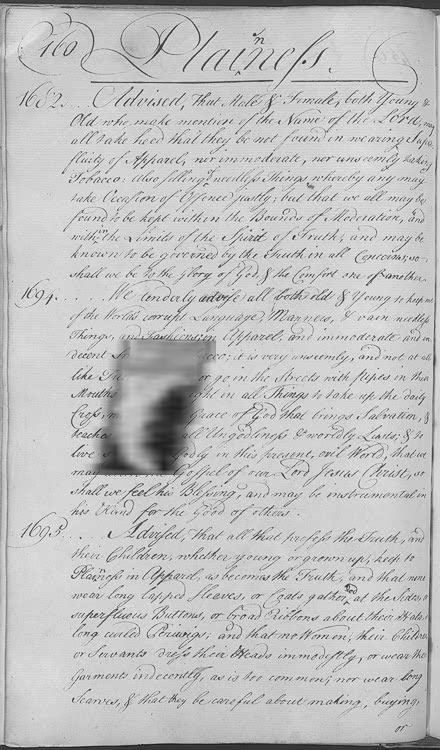 160
Plainness.
1682... Advised, That Male & Female, both Young &
Old who make mention of the Name of the Lord, may
all take heed that they be not found in wearing Supe
fluity of Apparel, nor immoderate, nor unseemly taking
Tobacco: also selling needless Things whereby any may
take Occasion of Offence justly; but that we all may be
found to be kept within the Bounds of Moderation, and
within the Limits of the Spirit of Truth; and may be
known to be governed by the Truth in all Concerns, so
shall we be to the Glory of God, & the Comfort one of another.
1694..... We tenderly advise all both old & Young to keep out
of the World's corrupt Language, Manners, & vain needless
Things, and Fashions in Apparel; and immoderate and in
decent it is very unseemly, and not at all
like or go in the Streets with pipes in their
Mouths in all Things to take up the daily
Cross, Grace of God that brings Salvation, &
teache all Ungodliness & worldly Lusts; & to
live in this present, evil World; that we
may Gospel of our Lord Jesus Christ, so
shall we feel his Blessing, and may be instrumental in
his Hand for the Good of others.
1695... Advised, That all that profess the Truth, and
their Children, whether young or grown up, keep to
Plainness in Apparel, as becomes the Truth; and that none
wear long lapped Sleeves, or Coats gathered at the Sides, or
superfluous Buttons, or broad Ribbons about their Hats, or
long curled Periwigs; and that no Women, their Children
or Servants dress their Heads immodestly, or wear their
Garments indecently, as is too common; nor wear long
Scarves, & that they be careful about making, buying,
or